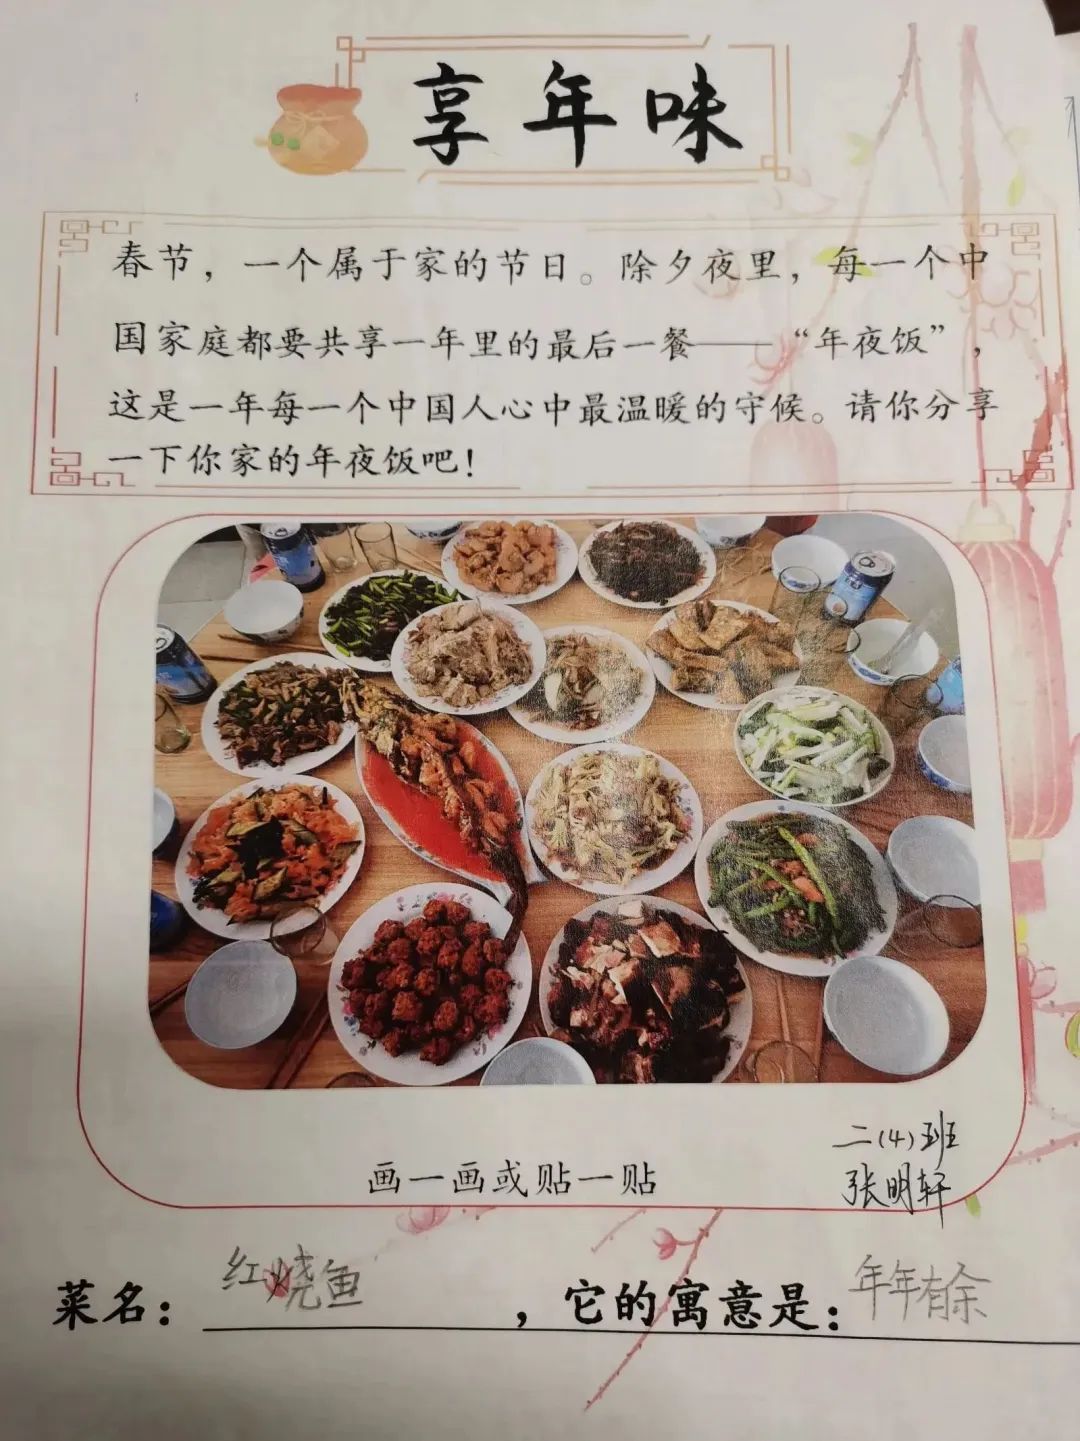 享年味
春节，一个属于家的节日。除夕夜里，每一个中
国家庭都要共享一年里的最后一餐——“年夜饭”，
这是一年每一个中国人心中最温暖的守候。请你分享
一下你家的年夜饭吧！
画一画或贴一贴
二(4)班
张明轩
菜名：红烧鱼，它的寓意是：年年有余